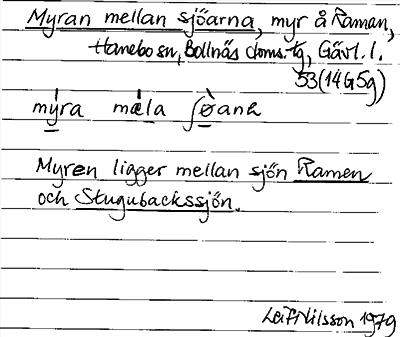 Myran mellan sjöarna, myr å Raman,
Hanebo sn, Bollnäs doms.tg, Gävl. l.
53(14G5g)
mỳ̱ra mæ̀la ʃø̱̀anɐ
Myren ligger mellan sjön Ramen
och Stugubackssjön.
Leif Nilsson 1979